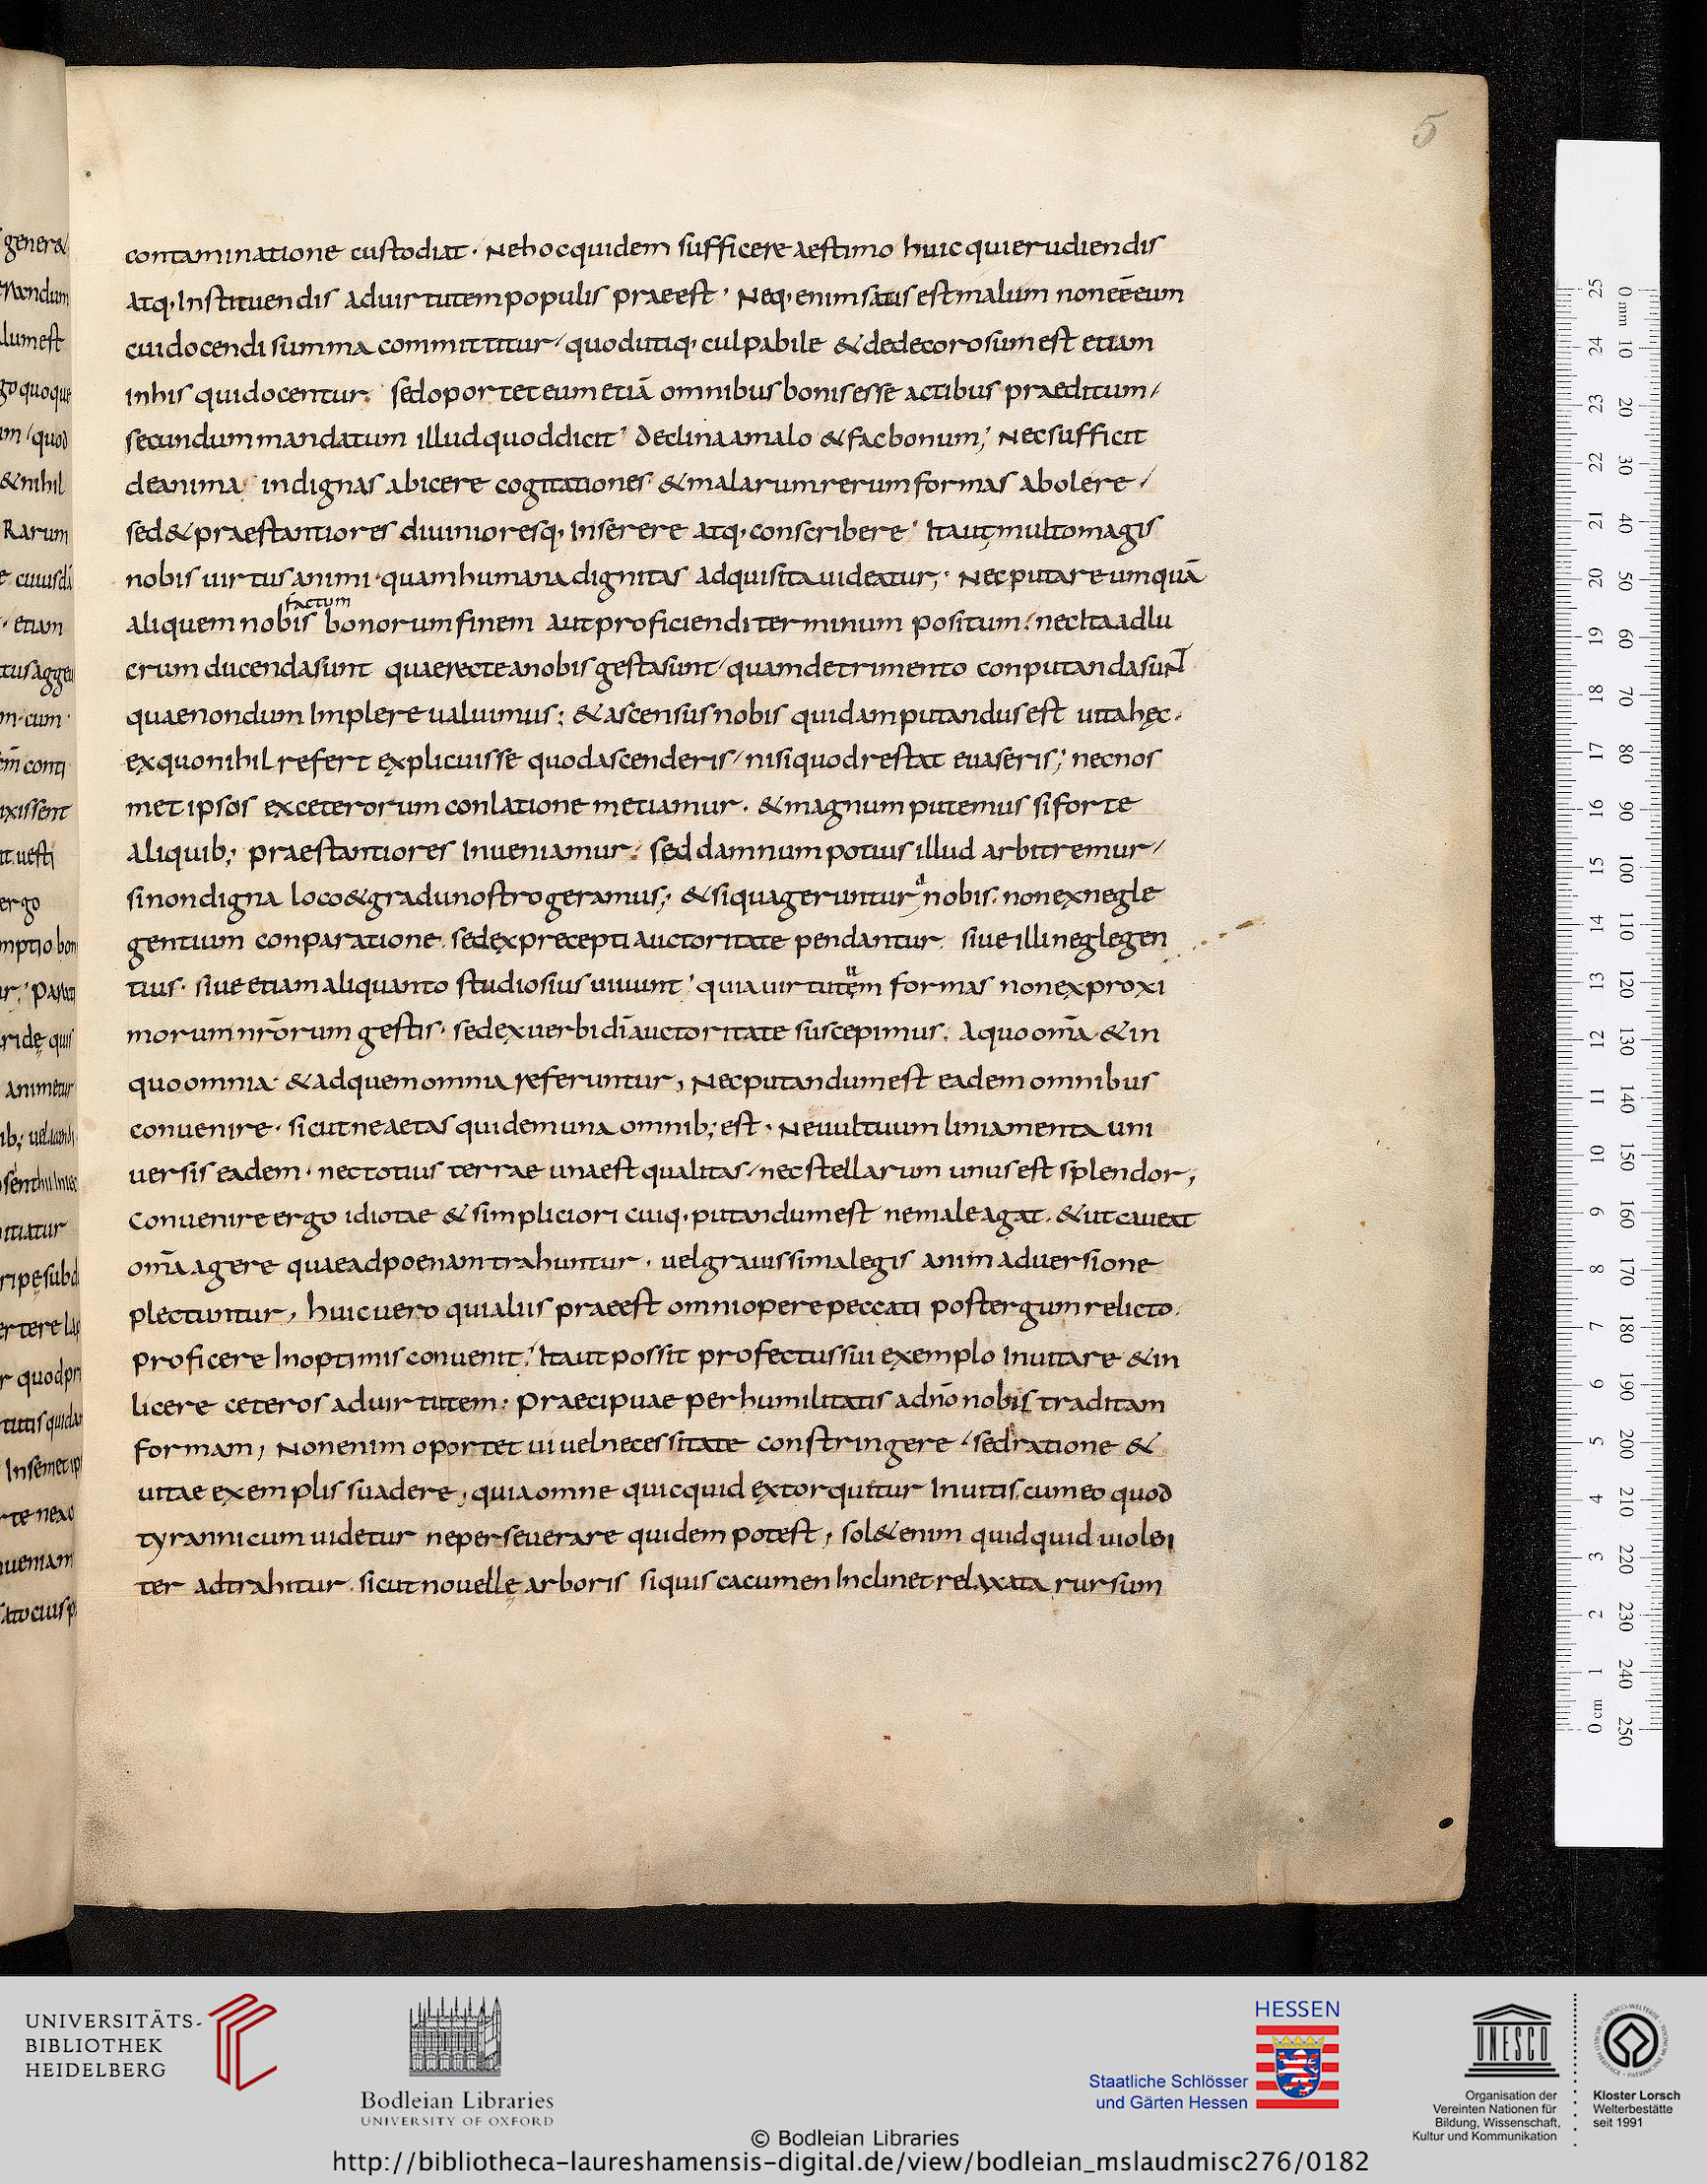 5
contaminatione custodiat. Ne hoc quidem sufficere aestimo huic qui erudiendis
atq; Instituendis ad uirtutem populis praeest. Neq; enim satis est malum non eē eum
cui docendi summa committitur quod utiq; culpabile & dedecorosum est etiam
in his qui docentur. sed oportet eum etiā omnibus bonis esse actibus praeditum
secundum mandatum illud quod dicit. Declina a malo & fac bonum; Nec sufficit
de anima indignas abicere cogitationes & malarum rerum formas abolere
sed & praestantiores diuinioresq; Inserere atq; conscribere. Ita ut multo magis
nobis uirtus animi quam humana dignitas adquisita uideatur; Nec putare umquā
aliquem nobis factum bonorum finem aut proficiendi terminum positum. nec Ita ad lu
crum ducenda sunt quae recte a nobis gesta sunt quam detrimento conputanda suNT
quae nondum Implere ualuimus; & ascensus nobis quidam putandus est uita hęc.
ex quo nihil refert explicuisse quod ascenderis nisi quod restat euaseris; nec nos
met ipsos ex ceterorum conlatione metiamur. & magnum putemus si forte
aliquib; praestantiores Inueniamur. sed damnum potius illud arbitremur
si non digna loco & gradu nostro geramus; & si qua geruntur a nobis. non ex negle
gentium conparatione. sed ex precepti auctoritate pendantur. siue illi neglegen
tius. siue etiam aliquanto studiosius uiuunt. quia uirtutum formas non ex proxi
morum nr̄orum gestis. sed ex uerbi dī auctoritate suscepimus. A quo om̄a & in
quo omnia & ad quem omnia referuntur, Nec putandum est eadem omnibus
conuenire. sicut ne aetas quidem una omnib; est. Ne uultuum liniamenta uni
uersis eadem. nec totius terrae una est qualitas. nec stellarum unus est splendor,
Conuenire ergo idiotae & simpliciori cuiq; putandum est ne male agat. & ut caueat
om̄a agere quae ad poenam trahuntur. uel grauissima legis animaduersione
plectuntur, huic uero qui aliis praeest omni opere peccati post tergum relicto.
proficere In optimis conuenit. Ita ut possit profectus sui exemplo Inuitare & in
licere ceteros ad uirtutem. Praecipuae per humilitatis a dn̄o nobis traditam
formam, Non enim oportet ui uel necessitate constringere sed ratione &
uitae exemplis suadere, quia omne quicquid extorquitur Inuitis. cum eo quod
tyrannicum uidetur ne perseuerare quidem potest, sol& enim quidquid uiolen
ter adtrahitur. sicut nouelle arboris si quis cacumen Inclinet relaxata rursum
UNIVERSITÄTS-
BIBLIOTHEK
HEIDELBERG
Bodleian Libraries
UNIVERSITY OF OXFORD
HESSEN
Staatliche Schlösser
und Gärten Hessen
UNESCO
Organisation der
Vereinten Nationen für
Bildung, Wissenschaft,
Kultur und Kommunikation
Kloster Lorsch
Welterbestätte
seit 1991
© Bodleian Libraries
http://bibliotheca-laureshamensis-digital.de/view/bodleian_mslaudmisc276/0182